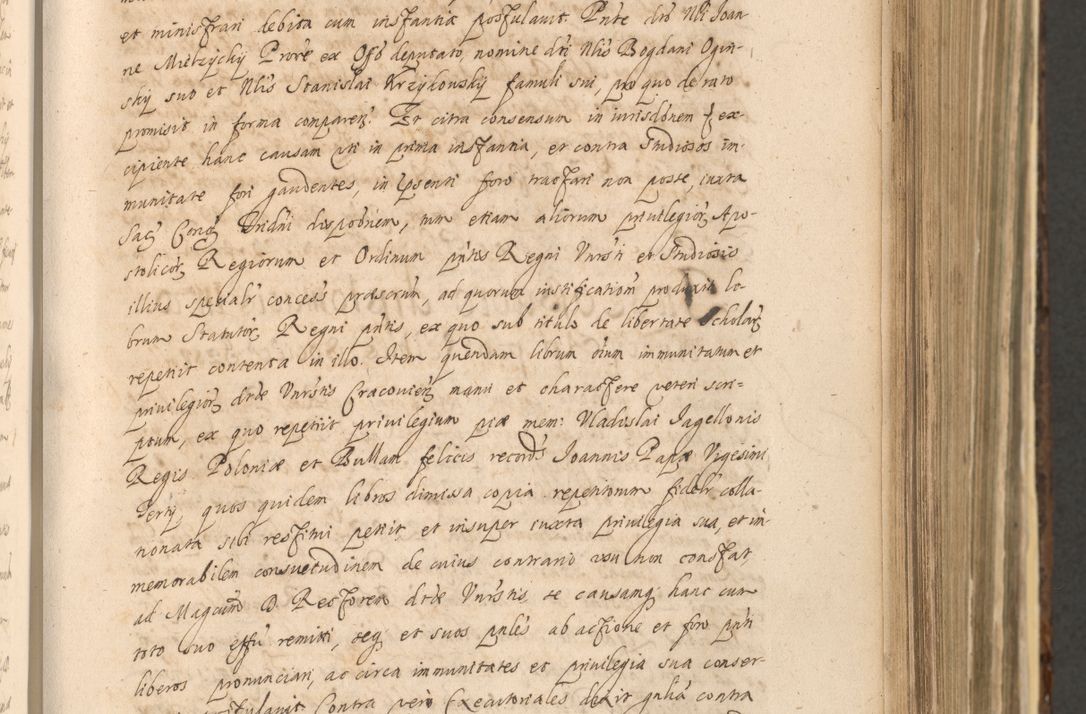 et ministrari debita cum instantia postulavit Pnte dto Nli Joan-
ne Mietzycky Prore ex Offo deputato, nomine dti Nlis Bogdani Ogin-
sky suo et Nlis Stanislai Krzykowsky famuli sui, pro quo de rato
promisit in forma comparen: Et citra consensum in iurisdonem ex-
cipiente hanc causam uti in prima instantia, et contra Studiosos im-
munitate fori gaudentes, in pnsenti foro tractari non posse, iuxta
Sac Conc Tridni dispoonem, tum etiam aliorum privilegior Apo-
stolicor Regiorum et Ordinum pntis Regni Vnrsti et Studiosis
illius specialr concess praescrum, ad quorum iustificationem produxit li-
brum Statutor Regni pntis, ex quo sub titulo de libertate Scholar
reperiit contenta in illo. Item quendam librum oium immunitatum et
privilegior dtae Vnrstis Cracovien manu et charactere veteri scri-
ptum, ex quo reperiit privilegium piae mem: Vladislai Jagellonis
Regis Poloniae et Bullam felicis record Joannis Papae Vigesimi
Tertij, quos quidem libros dimissa copia repertorum fidelr colla-
tionata sibi restitui petiit et insuper iuxta privilegia sua, et im-
memorabilem consuetudinem de cuius contrario usu non constat,
ad Magcum D. Rectorem dtae Vnrstis se causamq hanc cum
toto suo effu remitti, seq et suos pnles ab actione et foro pnti
liberos pronunciari, ac circa immunitates et privilegia sua conser-
Contra vero Executoriales dixit contra